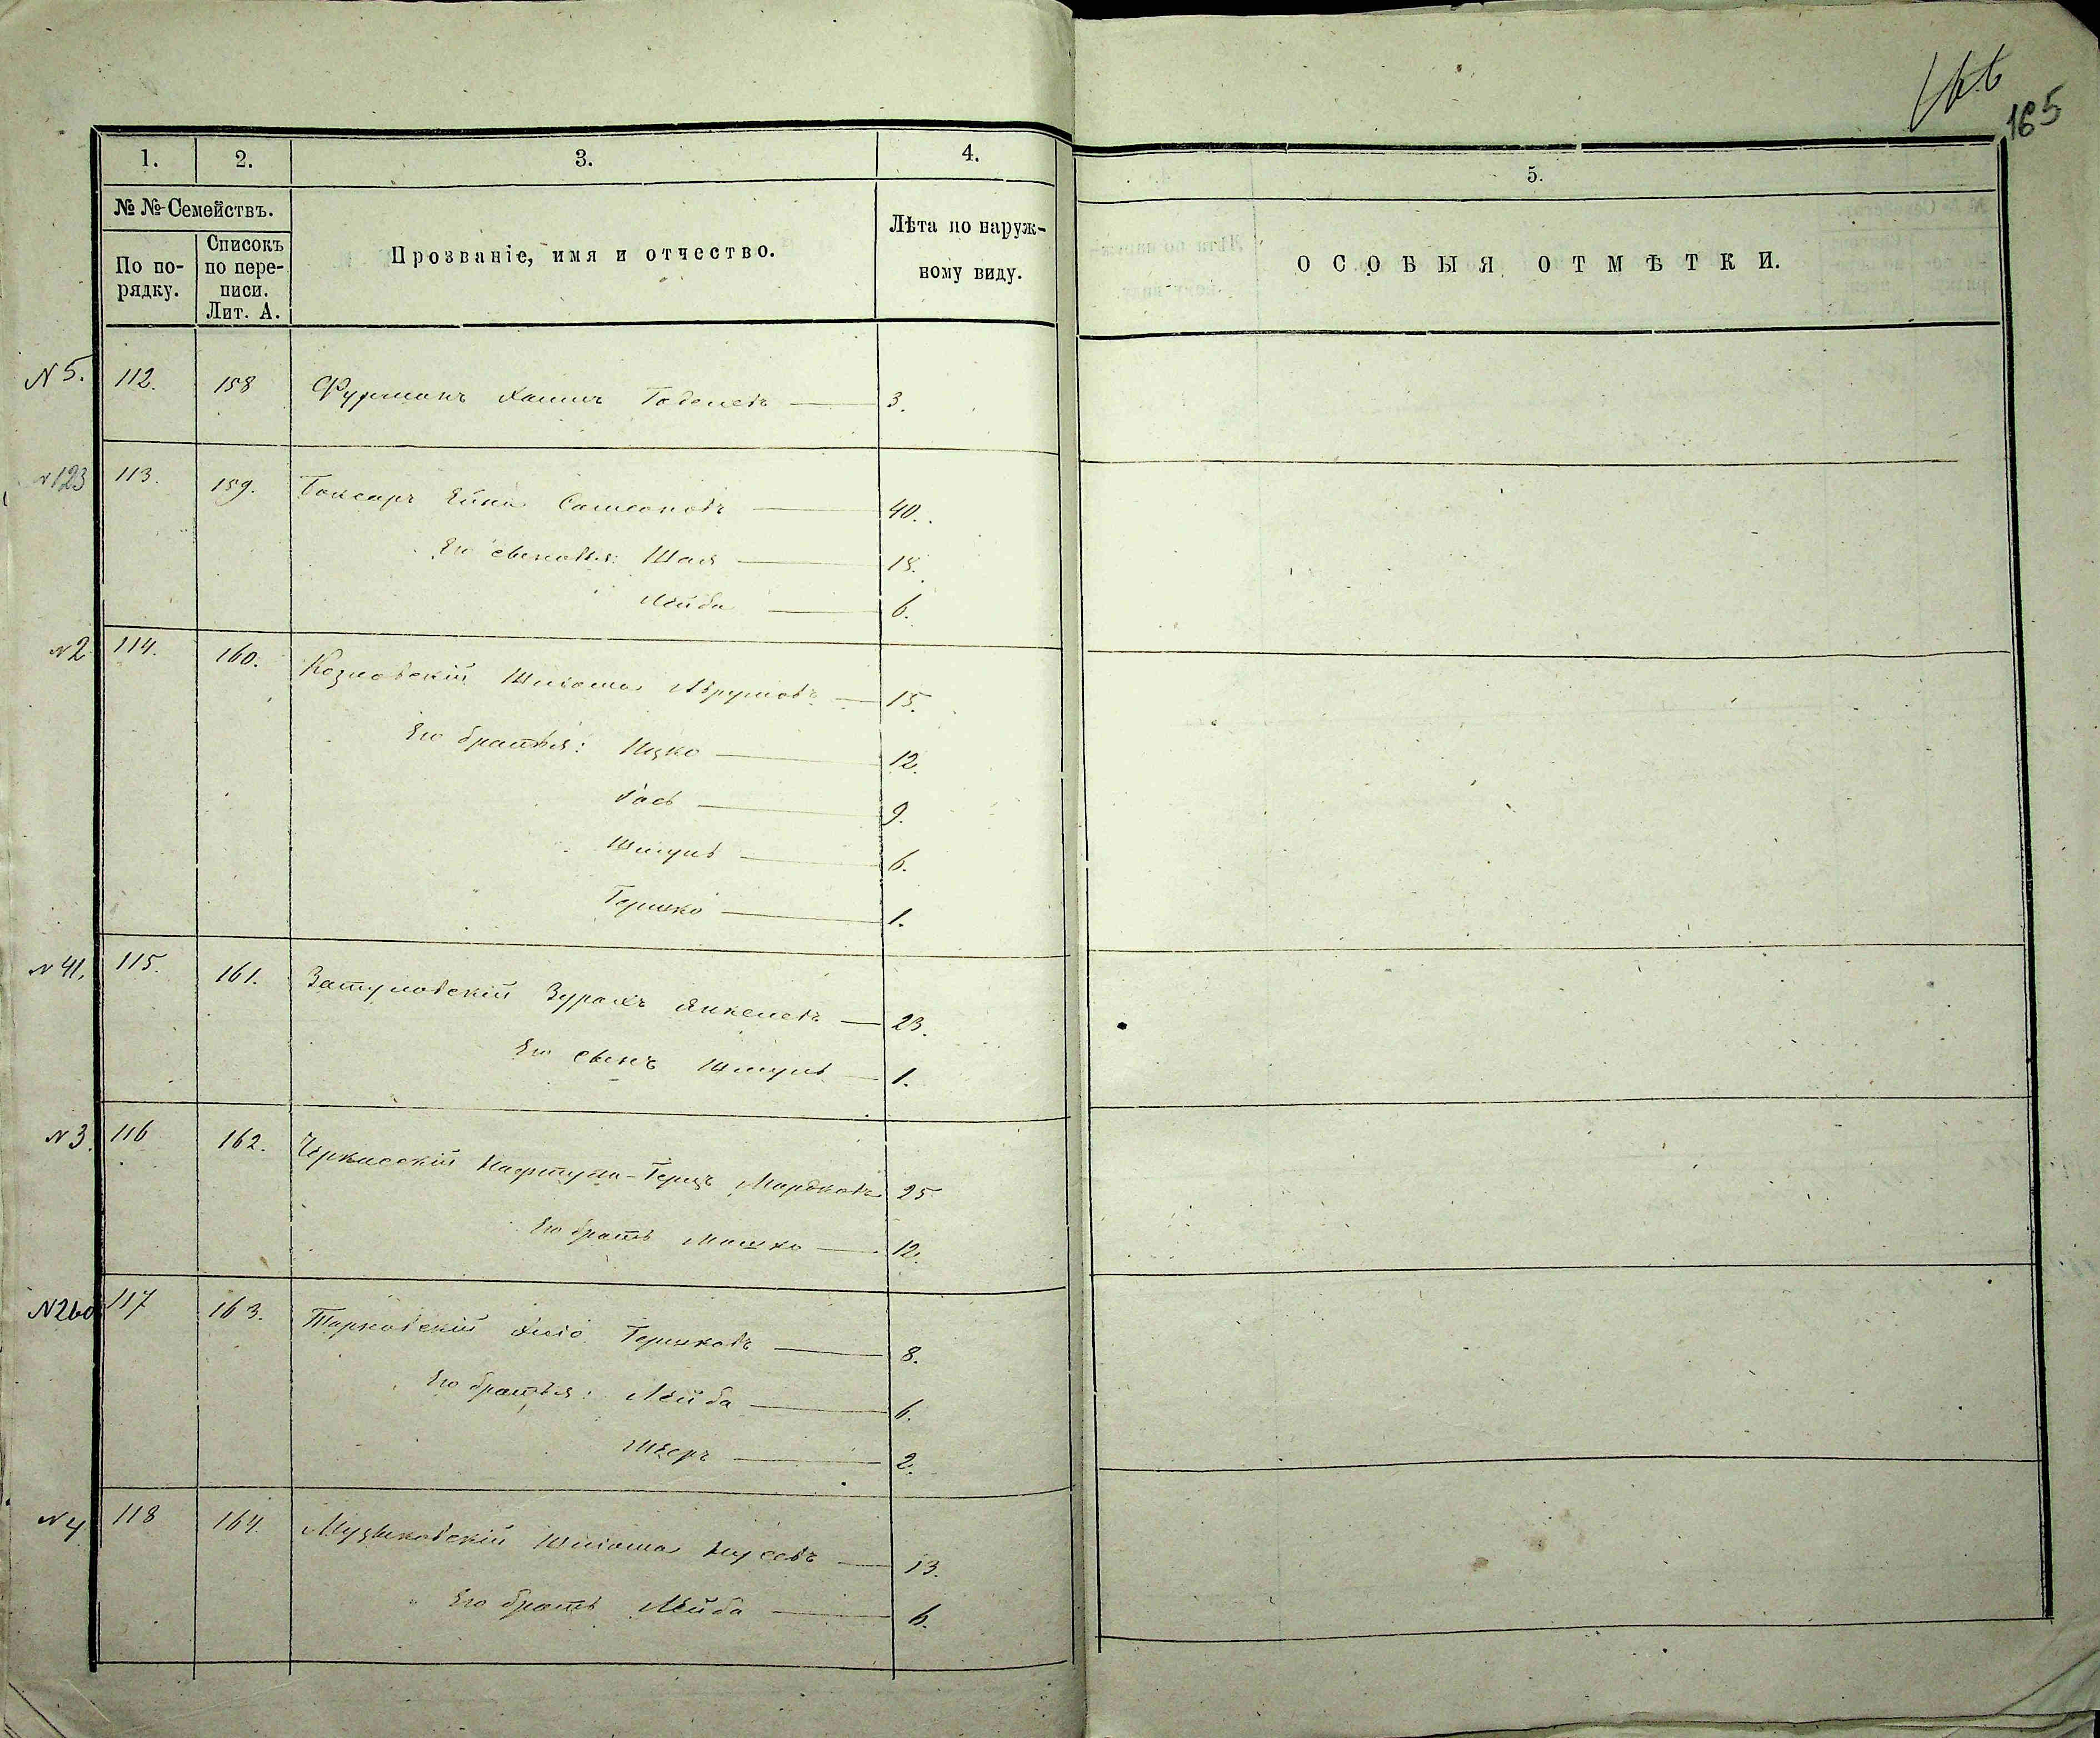 166
165
1. 2. 3. 4. 5.
№ № Семействъ.
По по-
рядку.
Списокъ
по пере-
писи.
Лит. А.
Прозваніе, имя и отчество.
Лѣта по наруж-
ному виду.
ОСОБЫЯ ОТМѢТКИ.
N 5. 112. 158 Фурманъ Хаимъ 3.
N 123 113. 159. Боксаръ Самсоновъ 40.
Его сыновья: Шая 18.
Лейба 6.
N 2 114. 160. Козловскій Шліома Аврумовъ 15.
Его братья: Ицко 12.
9.
Шмуль 6.
Гершко 1.
N 41. 115. 161. Затуловскій Зурахъ Янкелевъ 23.
Его сынъ Шмуль 1.
N 3. 116 162. Черкасскій Нафтула-Герцъ Мордковъ 25
Его братъ Мошко 12.
N 260 117 163. Тарновскій Гершковъ 8.
Его братья: Лейба 6.
2.
N 4 118 164. Шліома Нусевъ 13.
Его братъ Лейба 6.